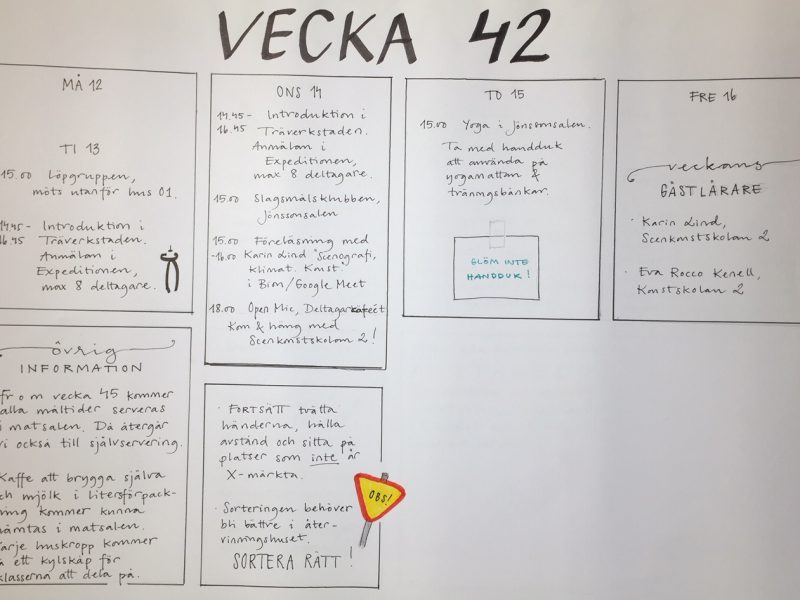 VECKA 42
MÅ 12
TI 13
15.00 Löpgruppen,
möts utanför hus 01.
14.45- Introduktion i
16.45 Träverkstaden.
Anmälan i
Expeditionen,
max 8 deltagare.
ONS 14
14.45- Introduktion i
16.45 Träverkstaden.
Anmälan i
Expeditionen,
max 8 deltagare.
15.00 Slagsmålsklubben,
Jönssonsalen
15.00 Föreläsning med
-16.00 Karin Lind "Scenografi,
klimat. Konst.
i Bion/Google Meet
18.00 Open Mic, Deltagarcaféet
Kom & häng med
Scenkonstskolan 2!
TO 15
15.00 Yoga i Jönssonsalen.
Ta med handduk
att använda på
yogamattan &
träningsbänkar.
GLÖM INTE
HANDDUK!
FRE 16
veckans
GÄSTLÄRARE
· Karin Lind,
Scenkonstskolan 2
· Eva Rocco Kenell,
Konstskolan 2
övrig
INFORMATION
fr o m vecka 45 kommer
alla måltider serveras
i matsalen. Då återgår
vi också till självservering.
Kaffe att brygga själva
och mjölk i litersförpack-
ning kommer kunna
hämtas i matsalen.
Varje huskropp kommer
få ett kylskåp för
klasserna att dela på.
· FORTSÄTT tvätta
händerna, hålla
avstånd och sitta på
platser som inte är
X-märkta.
OBS!
· Sorteringen behöver
bli bättre i åter-
vinningshuset.
SORTERA RÄTT!